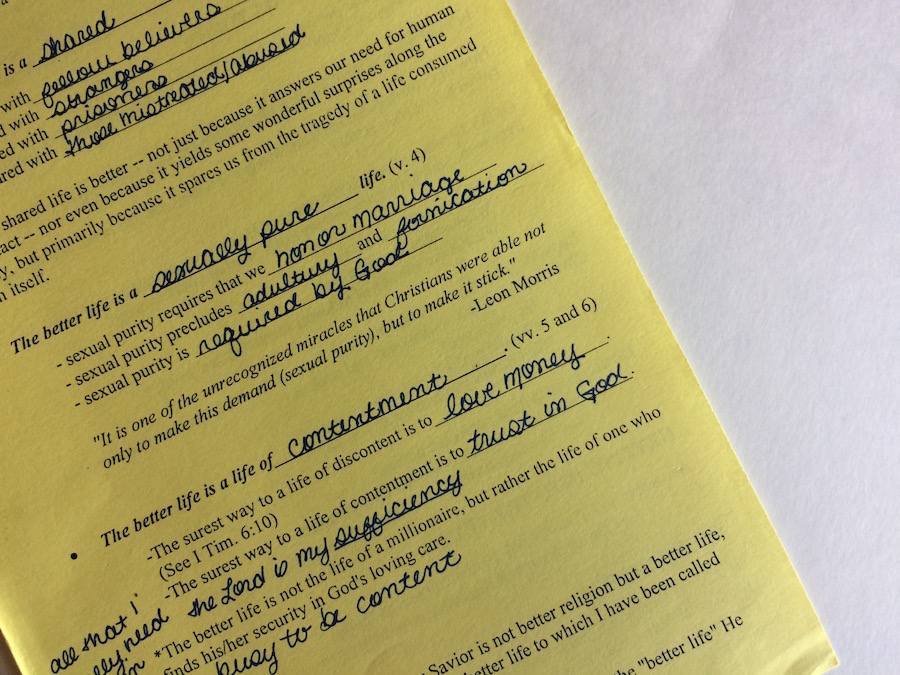 is a shared
with fellow believers
d with strangers
ed with prisoners
ared with those mistreated/abused
shared life is better -- not just because it answers our need for human
act -- nor even because it yields some wonderful surprises along the
y, but primarily because it spares us from the tragedy of a life consumed
n itself.
The better life is a sexually pure life. (v. 4)
- sexual purity requires that we honor marriage
- sexual purity precludes adultury and fornication
- sexual purity is required by God
"It is one of the unrecognized miracles that Christians were able not
only to make this demand (sexual purity), but to make it stick."
-Leon Morris
• The better life is a life of contentment. (vv. 5 and 6)
-The surest way to a life of discontent is to love money.
(See I Tim. 6:10)
-The surest way to a life of contentment is to trust in God.
all that I
need the Lord is my sufficiency
*The better life is not the life of a millionaire, but rather the life of one who
finds his/her security in God's loving care.
busy to be content
Savior is not better religion but a better life,
better life to which I have been called
the "better life" He